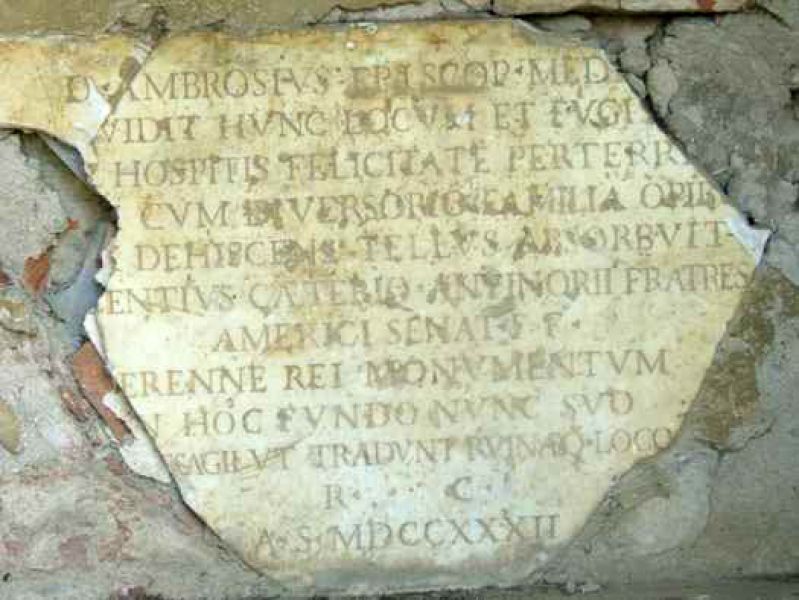 D · AMBROSIVS · EPISCOP · MED
VIDIT HVNC LOCVM ET FVGI
HOSPITIS FELICITATE PERTERR
CVM DIVERSORIO FAMILIA OPIB
DEHISCENS TELLVS ABSORBVIT ·
ENTIVS CAT ANTINORII FRATRES
AMERICI SENAT · F ·
ERENNE REI MONVMENTVM
N HOC FVNDO NVNC SVO
VT TRADVNT RVINAQ · LOCO
R · · · C ·
A · S · MDCCXXXII